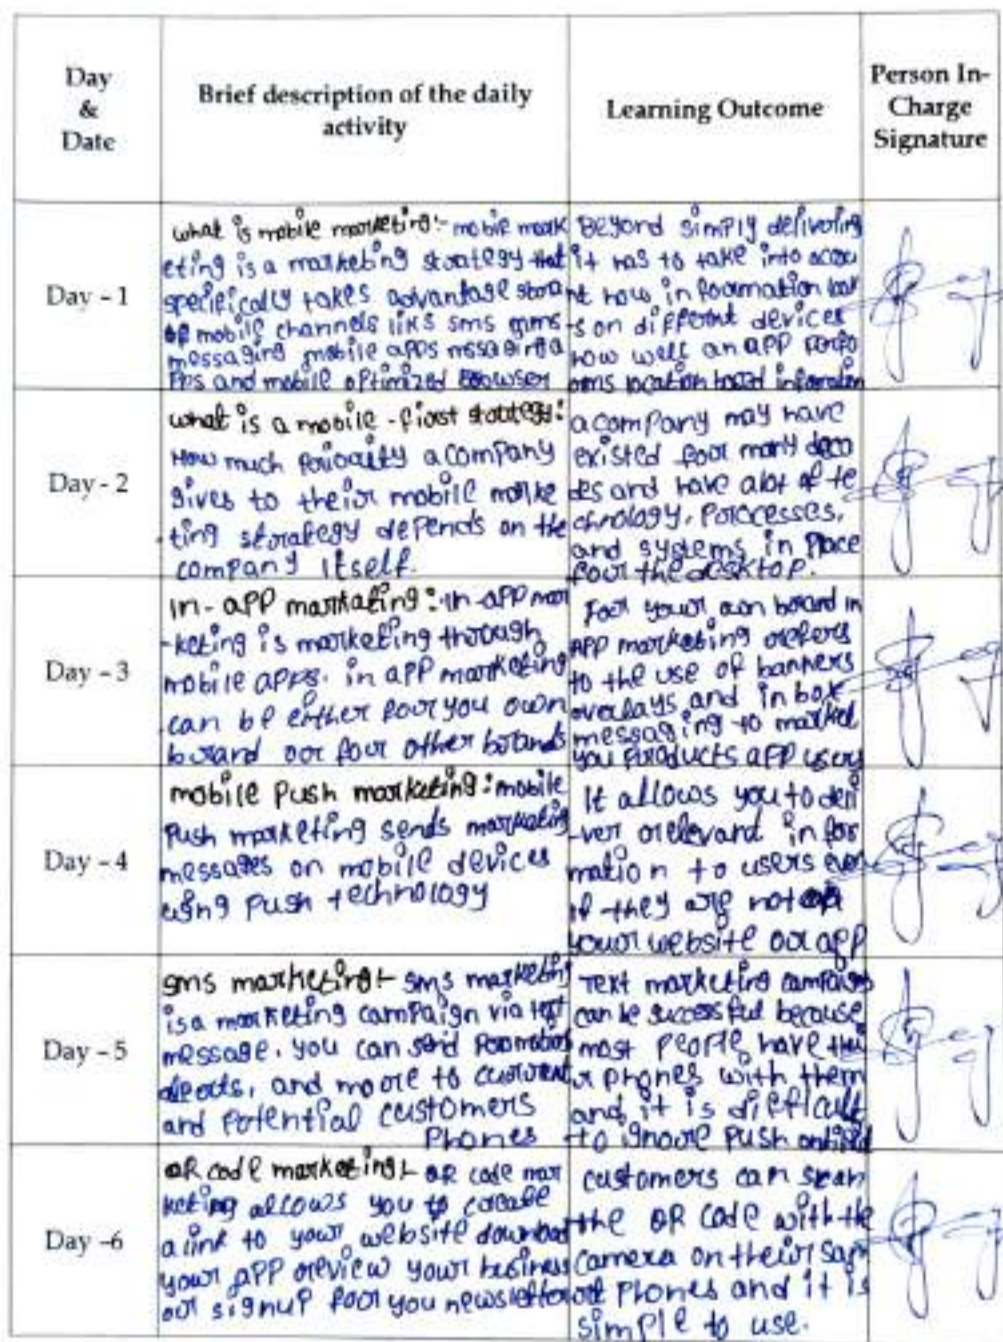 Day
&
Date
Brief description of the daily
activity
Learning Outcome
Person In-
Charge
Signature
Day - 1
what is mobile marketing:- mobie mark
eting is a marketing strategy that
specifically takes advantage
of mobile channels liks sms mms
messaging mobile apps
pps and mobile optimized Browser
Beyond simply delivering
it has to take into accou
nt how information look
s on different devices
how well an app perfo
orms location based information
Day - 2
what is a mobile - first strategy:
How much priority a company
gives to their mobile marke
ting strategy depends on the
company itself.
a company may have
existed for many deca
des and have alot of te
chnology, processes,
and systems in place
for the desktop.
Day - 3
in-app marketing: in-app mar
-keting is marketing through
mobile apps. in app marketing
can be either for you own
brand or for other brands
For your own brand in
APP marketing refers
to the use of banners
overlays and in box
messaging to market
you products app users
Day - 4
mobile push marketing: mobile
push marketing sends marketing
messages on mobile devices
using push technology
It allows you to deli
ver relevand infor
mation to users even
if they are not
your website or app
Day - 5
sms marketing:- sms marketing
is a marketing campaign via text
message. you can send promotions
and more to current
and potential customers
Phones
Text marketing campaigns
can be successful because
most people have thei
r phones with them
and it is difficult
to ignore push
Day -6
QR code marketing:- QR code mar
keting allows you to create
a link to your website download
your app review your business
or signup for you newsletter
customers can scan
the QR code with the
camera on their
phones and it is
simple to use.